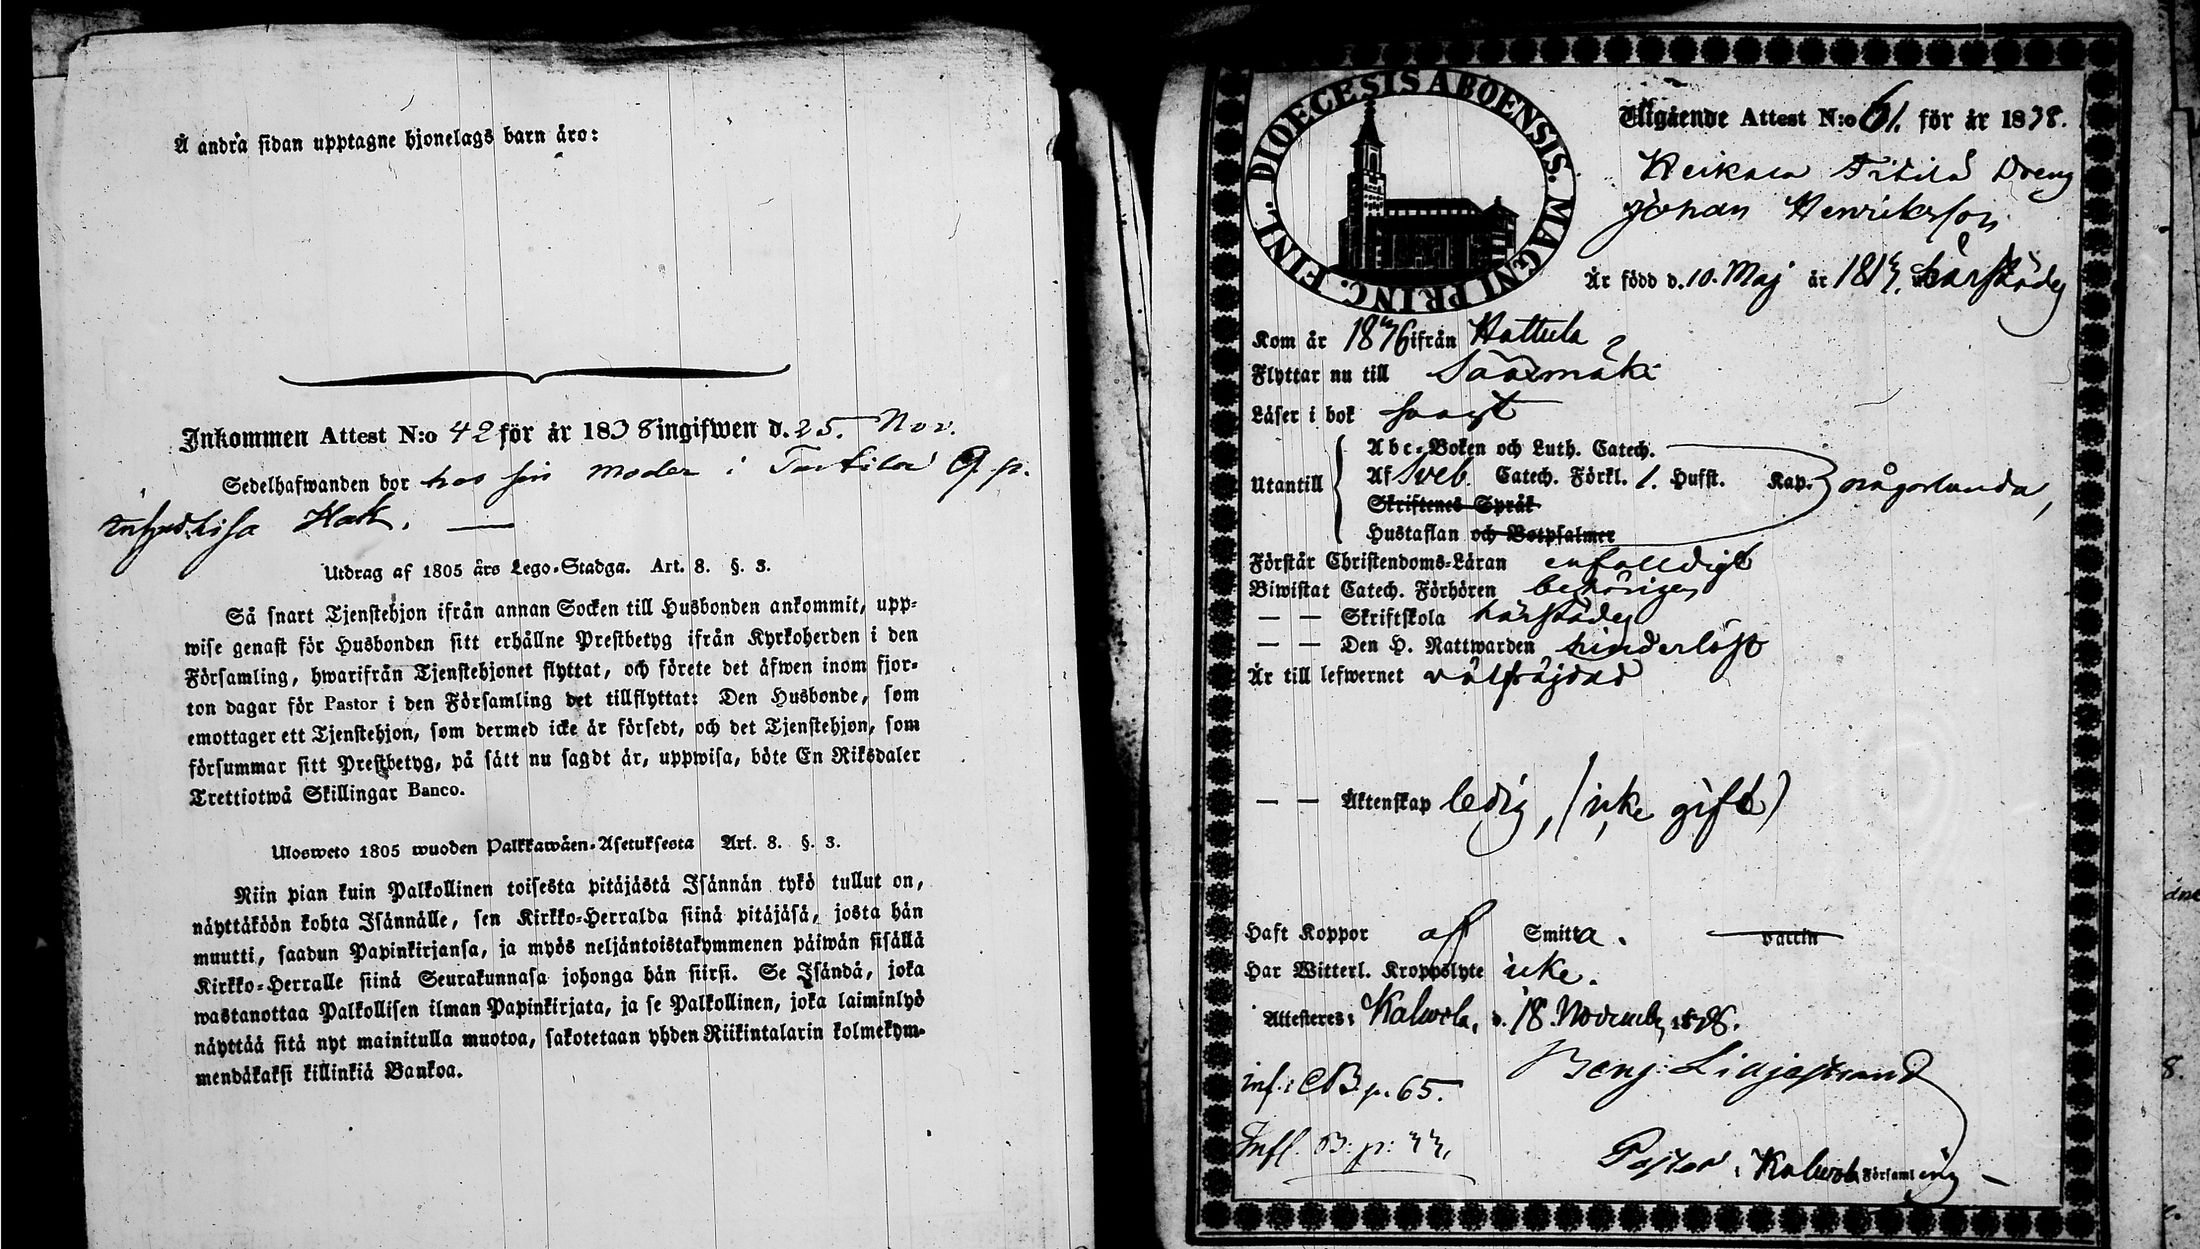 Å andra sidan upptagne hjonelags barn äro:
Inkommen Attest N:o 42 för år 1838 ingifwen d. 25. Nov.
Sedelhafwanden bor hos sin moder i
Utdrag af 1805 års Lego-Stadga. Art. 8. §. 3.
Så snart Tjenstehjon ifrån annan Socken till Husbonden ankommit, upp-
wise genast för Husbonden sitt erhållne Prestbetyg ifrån Kyrkoherden i den
Församling, hwarifrån Tjenstehjonet flyttat, och förete det äfwen inom fjor-
ton dagar för Pastor i den Församling det tillflyttat: Den Husbonde, som
emottager ett Tjenstehjon, som dermed icke är försedt, och det Tjenstehjon, som
försummar sitt Prestbetyg, på sätt nu sagdt är, uppwisa, böte En Riksdaler
Trettiotwå Skillingar Banco.
Ulosweto 1805 wuoden Palkkawäen-Asetuksesta Art. 8. §. 3.
Niin pian kuin Palkollinen toisesta pitäjästä Isännän tykö tullut on,
näyttäköön kohta Isännälle, sen Kirkko-Herralda siinä pitäjäsä, josta hän
muutti, saadun Papinkirjansa, ja myös neljäntoistakymmenen päiwän sisällä
Kirkko-Herralle siinä Seurakunnasa johonga hän siirsi. Se Isändä, joka
wastanottaa Palkollisen ilman Papinkirjata, ja se Palkollinen, joka laiminlyö
näyttää sitä nyt mainitulla muotoa, sakotetaan yhden Riikintalarin kolmekym-
mendäkaksi killinkiä Bankoa.
DIOECESIS ABOENSIS. MAGNI PRINC. FINL.
Utgående Attest N:o 61. för år 1838.
Dreng
Johan Henriksson
Är född d. 10. Maj år 1817. härstädes
Kom år 1836 ifrån Hattula
Flyttar nu till Sääxmäki
Läser i bok svagt
Abc-Boken och Luth. Catech.
Utantill Af Sveb. Catech. Förkl. 1. Hufst. Kap. någorlunda,
Skriftenes Språk
Hustaflan och Botpsalmer
Förstår Christendoms-Läran enfalldigt
Biwistat Catech. Förhören behörigen
— — Skriftskola härstädes
— — Den H. Nattwarden hinderlöst
Är till lefwernet välfräjdad
— — Äktenskap ledig, (icke gift)
Haft Koppor af Smitta. vaccin
Har Witterl. Kroppslyte icke.
Attesteras: Kalvola, d. 18 November 1838.
inf: CB p. 65.
Benj: Liljestrand
Infl. B: p: 33.
Pastor i Kalvola Församling